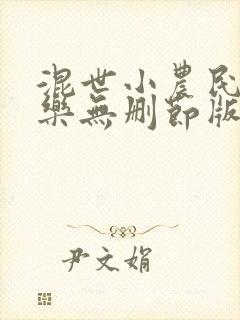 混世小農民
樂無刪節版
尹文娟